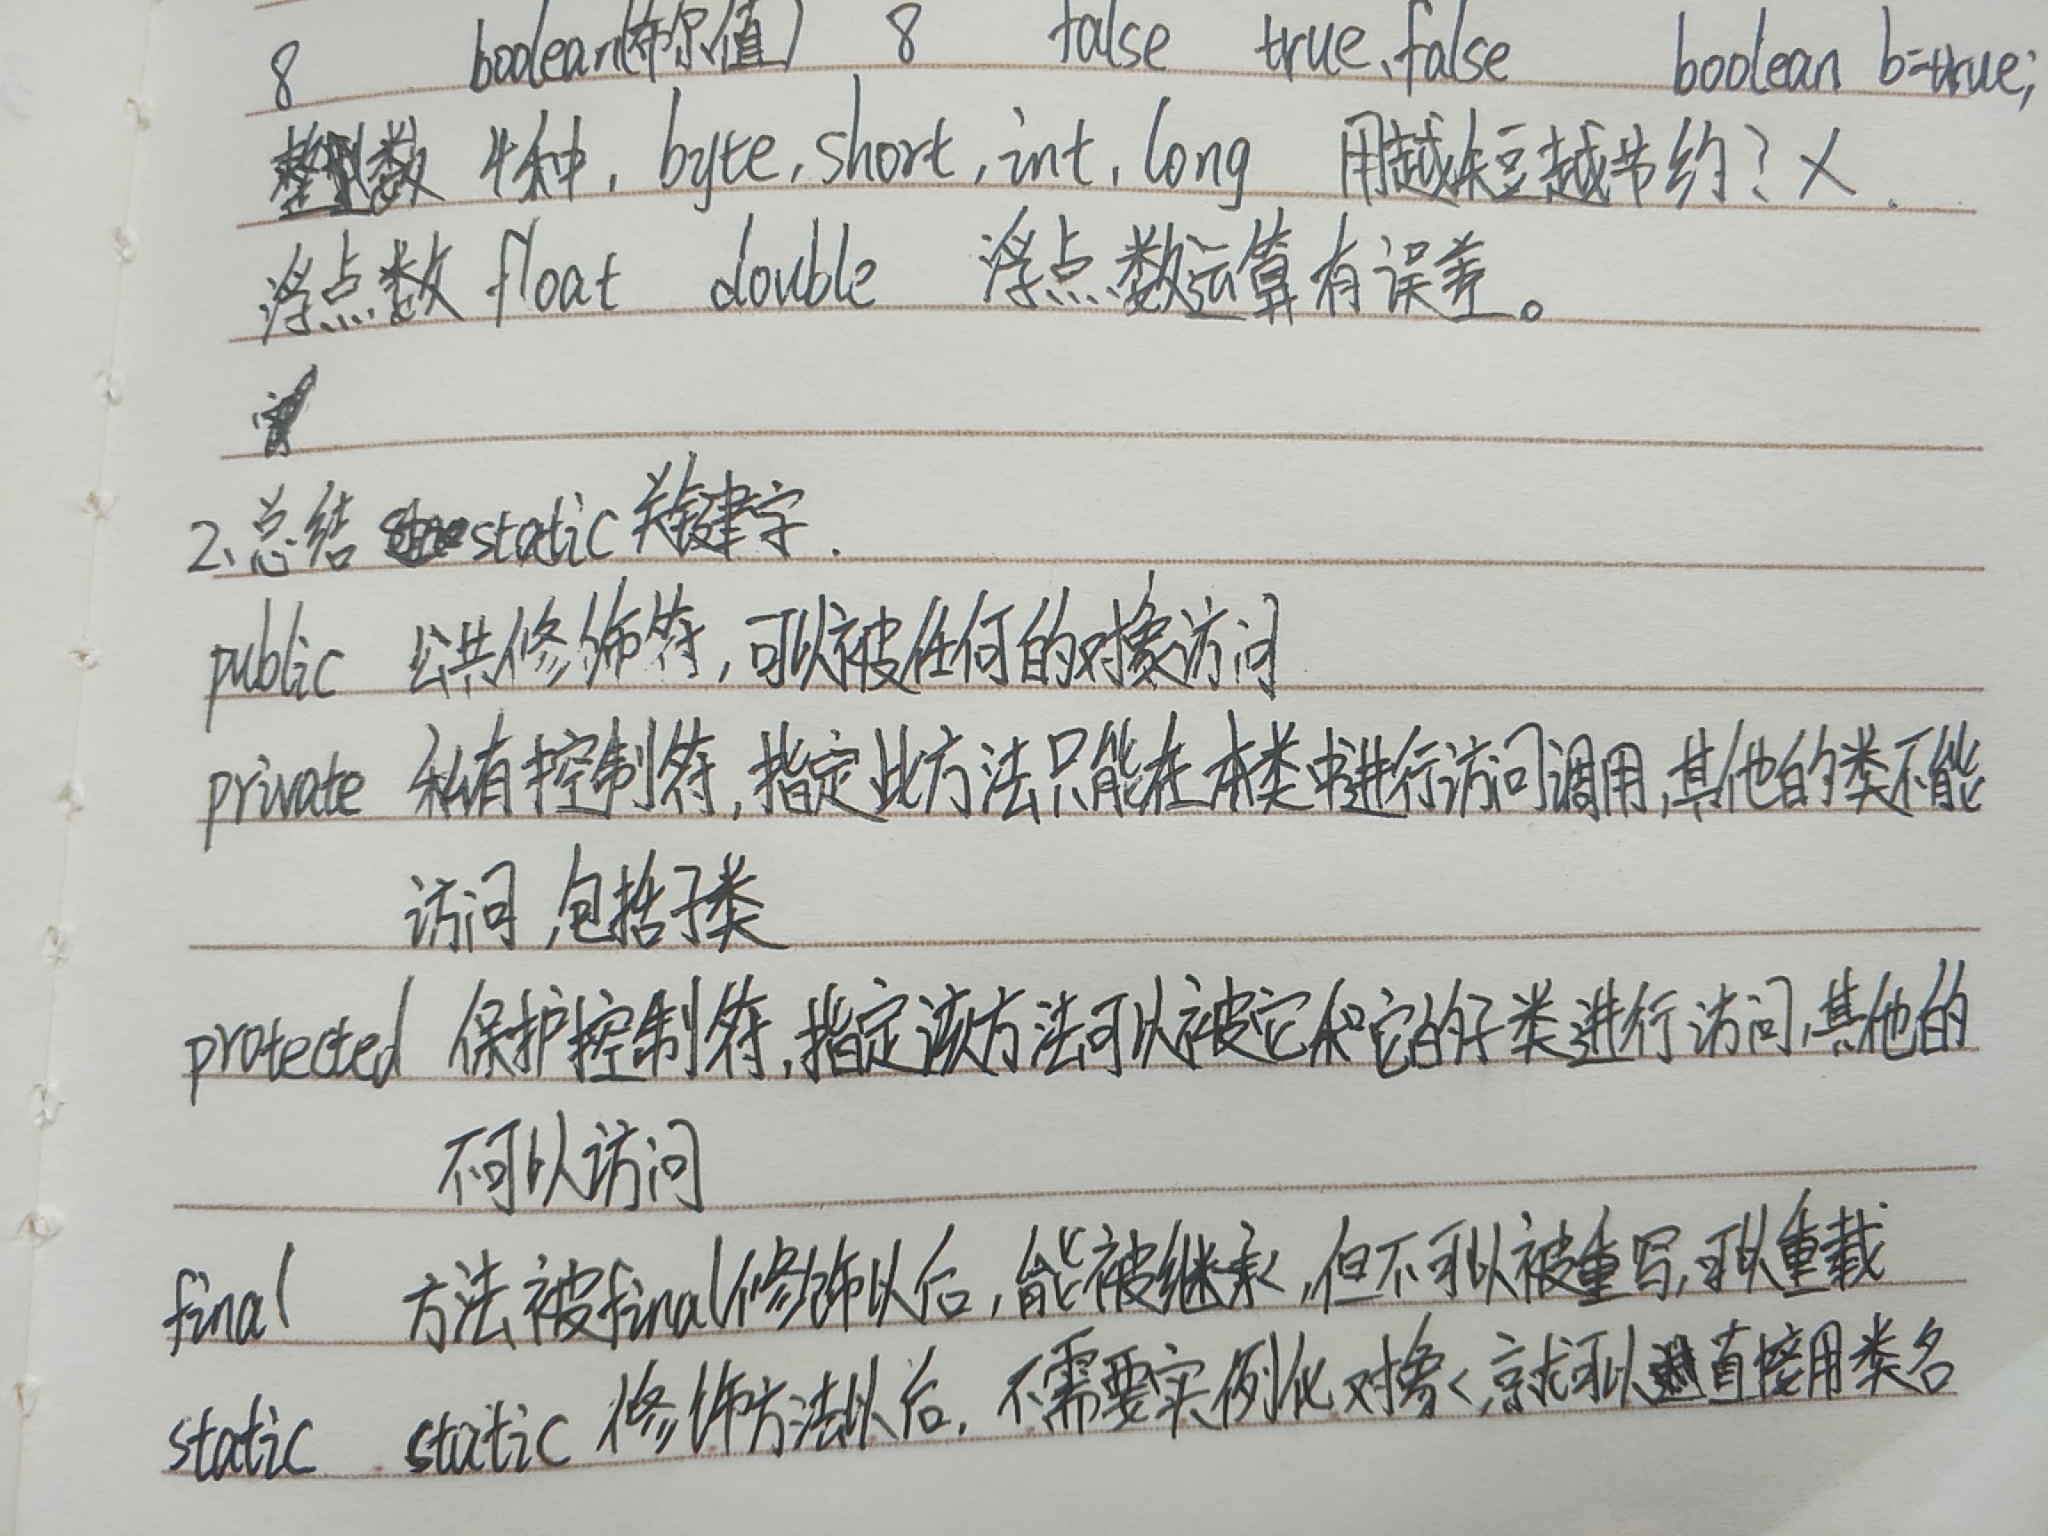 8 boolean(布尔值) 8 false true、false boolean b=true;
整数 byte, short, int, long 用越大越节约? X.
浮点数 float double 浮点数运算有误差。
2、总结 static关键字.
public 公共修饰符,可以被任何的对像访问
private 私有控制符,指定此方法只能在本类进行访问调用,其他的类不能
访问,包括子类
protected 保护控制符,指定该方法可以被它和它的子类进行访问,其他的
不可以访问
final 方法被final修饰以后,能被继承,但不可以被重写,可以重载
static static修饰方法以后,不需要实例化对像,就可以直接用类名